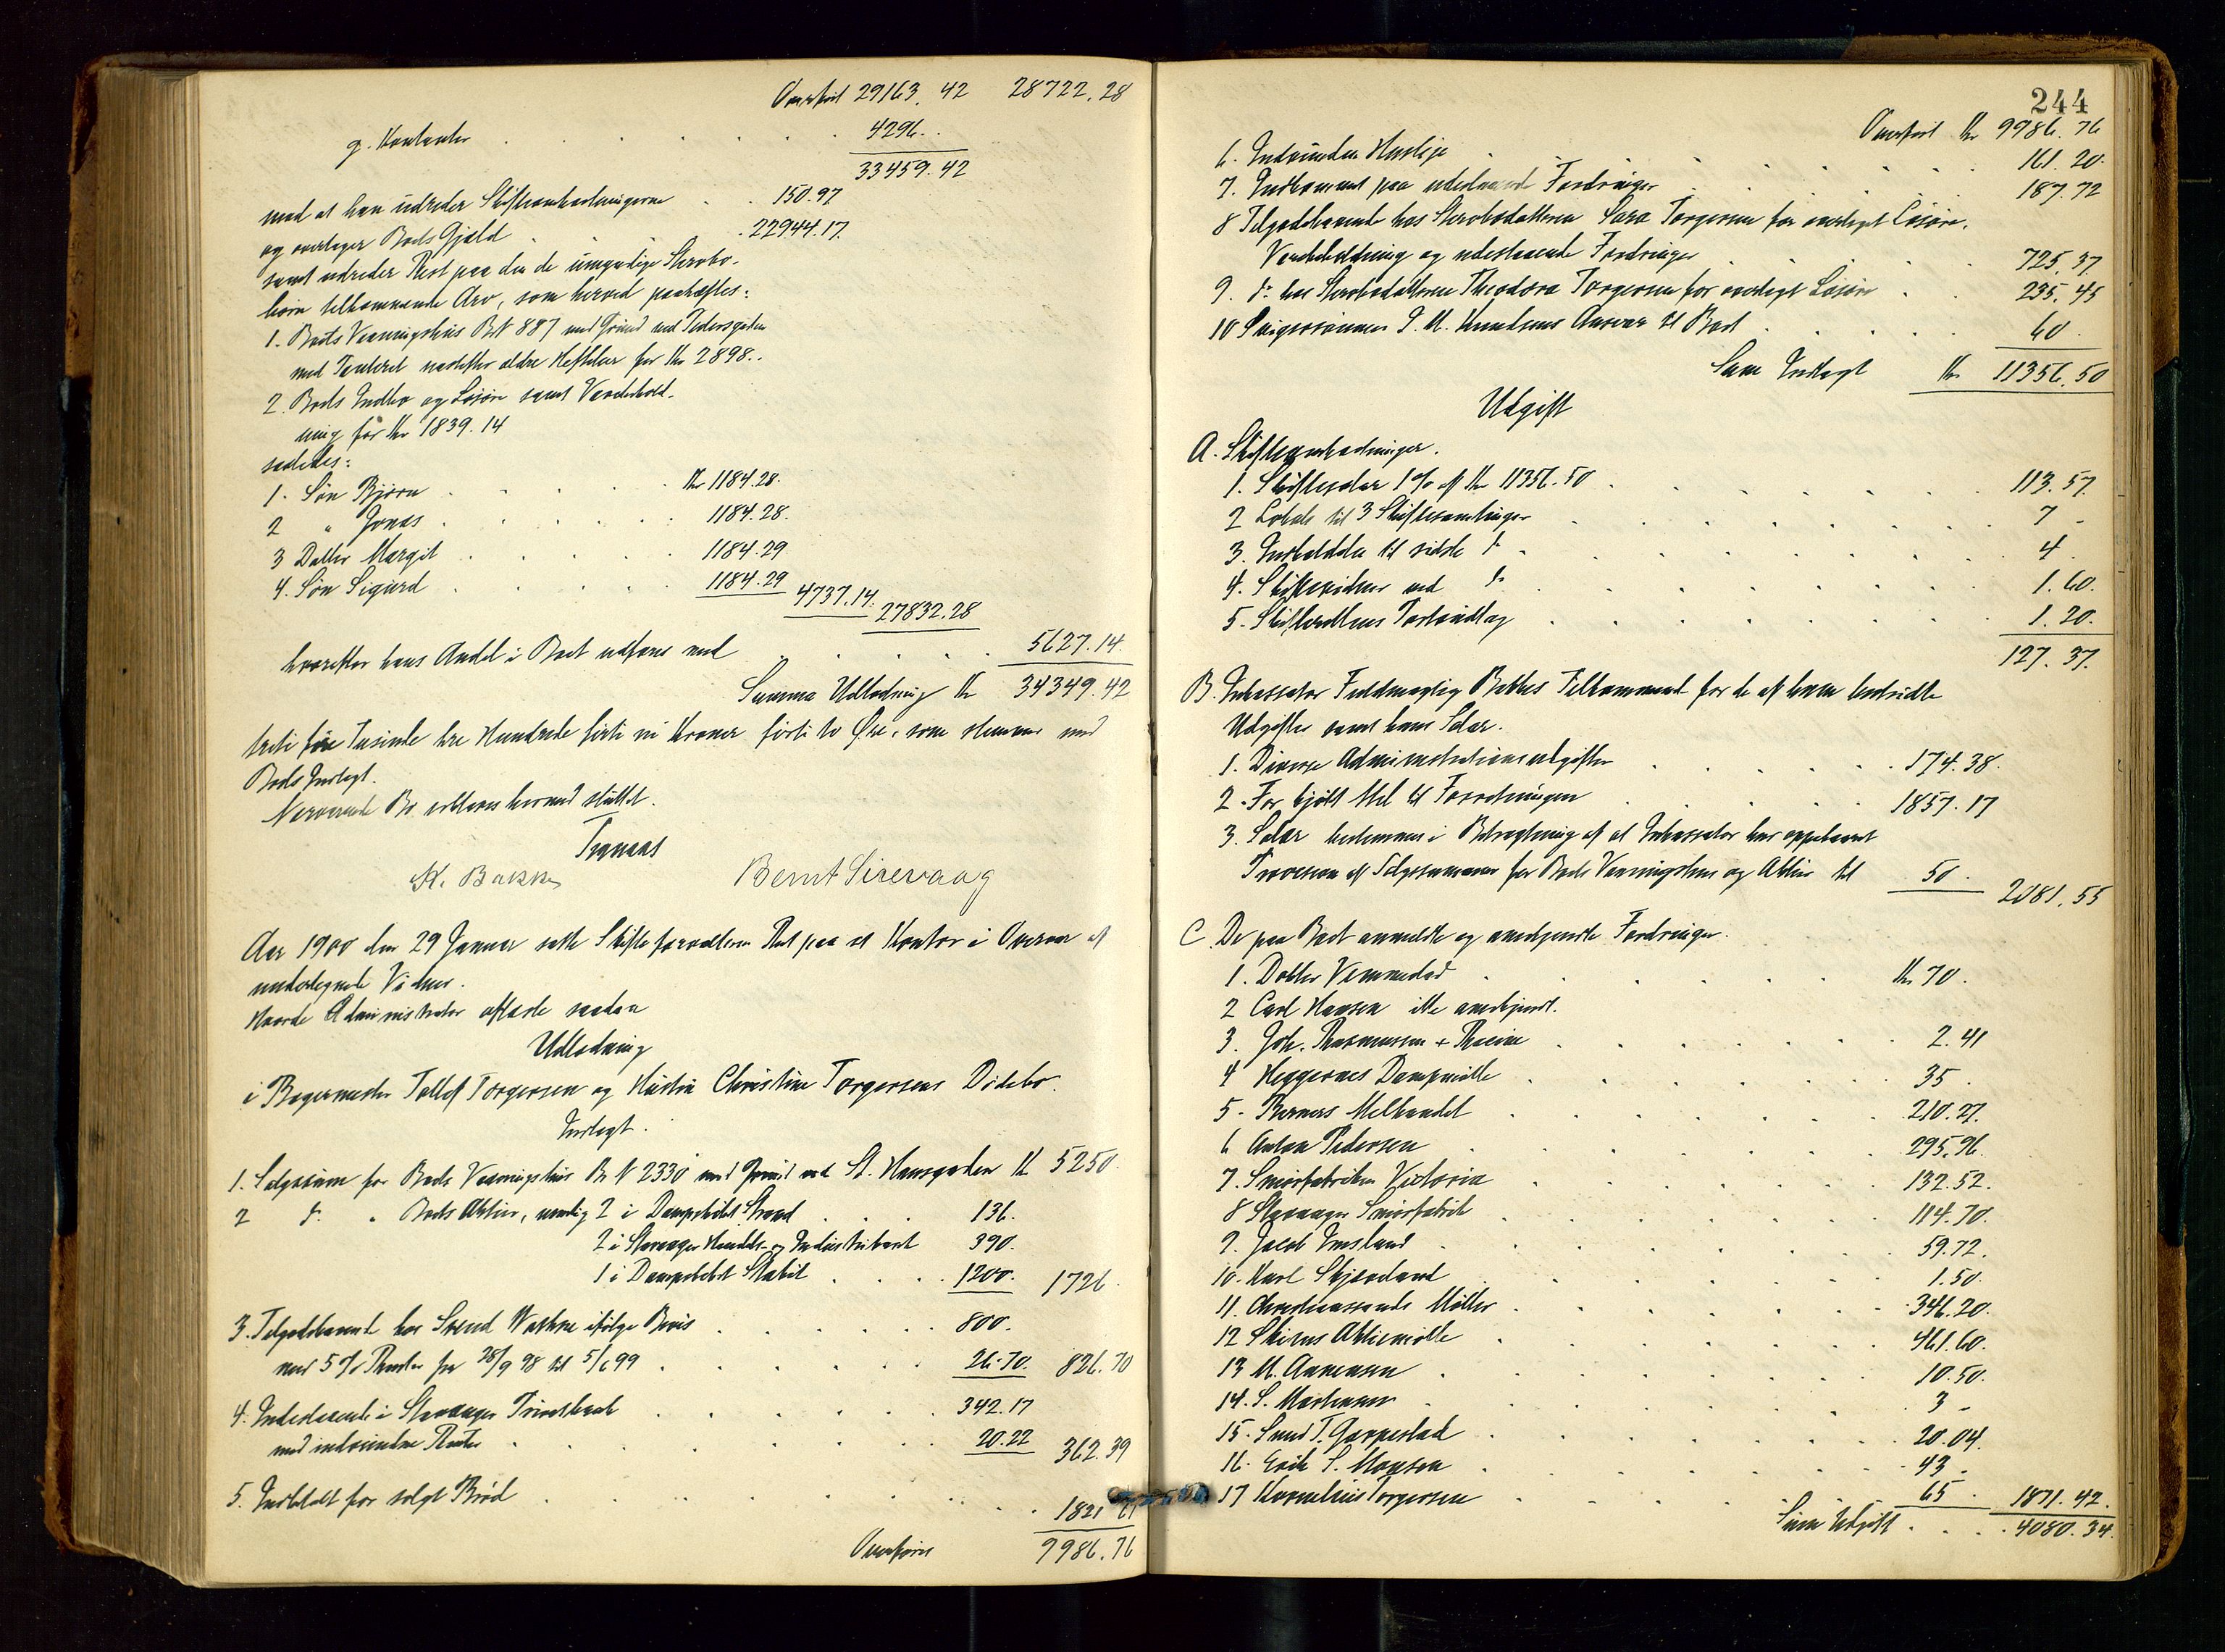 Overført 29163.42 28722.28
g. Kontanter 4296..
33459.42
mod at han udreder Skifteomkostningerne 150.97
og overtager Boets Gjæld 22944.17.
samt udreder Rest paa den de umyndige Stervbo-
børn tilkommende Arv, som herved paahæftes:
1. Boets Vaaningshus B N 887 med Grund ved Pedersgaden
med Panteret næstefter ældre Heftelser for Kr 2898..
2. Boets Indbo og Løsøre samt Varebehold-
ning for Kr 1839.14
saaledes:
1. Søn Bjørn Kr 1184.28.
2 " Jonas 1184.28.
3 Datter Margit 1184.29
4. Søn Sigurd 1184.29 4737.14. 27832.28
hvorefter hans Andel i Boet udføres med 5627.14.
Summa Udlodning Kr 34349.42
treti fire Tusinde tre Hundrede førti ni Kroner førti to Øre, som stemmer med
Boets Indtægt.
Nærværende Bo erklæres hermed sluttet.
Tranaas
K. Bakke Bernt Sirevaag
Aar 1900 den 29 Januar satte Skifteforvalteren Ret paa sit Kontor i Overvær af
undertegnede Vidner.
Hvorde Administrator afsagde saadan
Udlodning
i Bagermester Tollef Torgersen og Hustru Christine Torgersens Dødsbo.
Indtægt.
1. Salgssum for Boets Vaaningshus B N 2330 med Grund ved St. Hansgaden Kr 5250.
2 do. " Boets Aktier, nemlig 2 i Dampskibet Strand 136.
2 i Stavanger Handels- og Industribank 390.
1 i Dampskibet Stabil 1200. 1726.
3. Tilgodehavende hos Svend Warhne ifølge Bevis 800.
med 5 % Renter fra 28/9 98 til 5/6 99 26.70. 826.70
4. Indestaaende i Stavanger Privatbank 342.17
med indvundne Renter 20.22 362.39
5. Indbetalt for solgt Brød 1821 67
Overføres 9986.76
244
Overført Kr 9986.76
6. Indvunden Husleje 161.20.
7. Indkommet paa udestaaende Fordringer 187.72
8 Tilgodehavende hos Stervbodatteren Sara Torgersen for overtaget Løsøre,
Varebeholdning og udestaaende Fordringer 725.37
9. do. hos Stervbodatteren Theodora Torgersen for overtagt Løsøre 235.45
10 Svigersønnen P. M. Knudsens Ansvar til Boet 60.
Sum Indtægt Kr 11356.50
Udgift
A. Skifteomkostninger.
1. Skiftesalær 1 % af Kr 11356.50 113.57
2 Lokale til 3 Skiftesamlinger 7 -
3. Indkaldelse til sidste do. 4.
4. Skiftevidner ved do. 1.60.
5. Skifterettens Forkyndelse 1.20.
127.37.
B. Inkassator Fuldmægtig Bakkes Tilkommende for de af ham bestridte
Udgifter samt hans Salær.
1. Diverse Administrationsudgifter 174.38.
2. For kjøbt Mel til Forretningen 1857.17
3. Salær bestemmes i Betragtning af at Inkassator har oppebaaret
Provision af Salgssummen for Boets Vaaningshus og Aktier til 50. 2081.55
C De paa Boet anmeldte og anerkjendte Fordringer.
1. Doktor Vemmestad Kr 70.
2 Carl Hansen ikke anerkjendt.
3. Joh. Rasmussen + Racine 2.41
4 Heggernes Dampmølle 35.
5. Berners Melhandel 210.27.
6 Anton Pedersen 295.96.
7. Smørfabriken Victoria 132.52.
8 Stavanger Smørfabrik 114.70.
9. Jacob Imsland 59.72.
10. Karl Skjæveland 1.50.
11. Christianssands Møller 346.20.
12 Skiens Aktiemølle 461.60.
13 M. Aanensen 10.50.
14. S. Mortensen 3 -
15. Svend T. Garpestad 20.04.
16. Erik S. Monsen 43 -
17 Kornelius Torgersen 65. 1871.42.
Sum Udgift 4080.34.